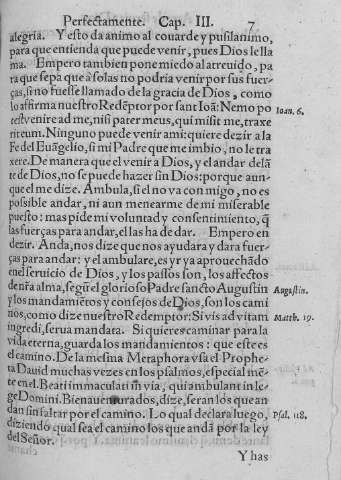 Perfectamente. Cap. III. 7
alegria. Y esto da animo al couarde y pusilanimo,
para que entienda que puede venir, pues Dios le lla
ma. Empero tambien pone miedo al atreuido, pa
ra que sepa que à solas no podria venir por sus fuer-
ças, si no fuesse llamado de la gracia de Dios, como
lo affirma nuestro Redẽptor por sant Ioã: Nemo po
test venire ad me, nisi pater meus, qui misit me, traxe
rit eum. Ninguno puede venir a mi: quiere dezir a la
Fe del Euãgelio, si mi Padre que me imbio, no le tra
xere. De manera que el venir a Dios, y el andar delã
te de Dios, no se puede hazer sin Dios: porque aun-
que el me dize. Ambula, si el no va con migo, no es
possible andar, ni aun menearme de mi miserable
puesto: mas pide mi voluntad y consentimiento, q̃
las fuerças para andar, el las ha de dar. Empero en
dezir. Anda, nos dize que nos ayudara y dara fuer-
ças para andar: y el ambulare, es yr ya aprouechãdo
en el seruicio de Dios, y los passos son, los affectos
denr̃a alma, segũ el glorioso Padre sancto Augustin
y los mandamiẽtos y consejos de Dios, son los cami
nos, como dize nuestro Redemptor: Si vis ad vitam
ingredi, serua mandata. Si quieres caminar para la
vida eterna, guarda los mandamientos: que este es
el camino. De la mesma Metaphora vsa el Prophe-
ta Dauid muchas vezes en los psalmos, especial mẽ-
te en el. Beati immaculati in via, qui ambulant in le-
ge Domini. Bienauenturados, dize, seran los que an
dan sin faltar por el camino. Lo qual declara luego,
diziendo qual sea el camino los que andã por la ley
del Señor.
Y has
Ioan. 6.
Augustin.
Matth. 19.
Psal. 118.